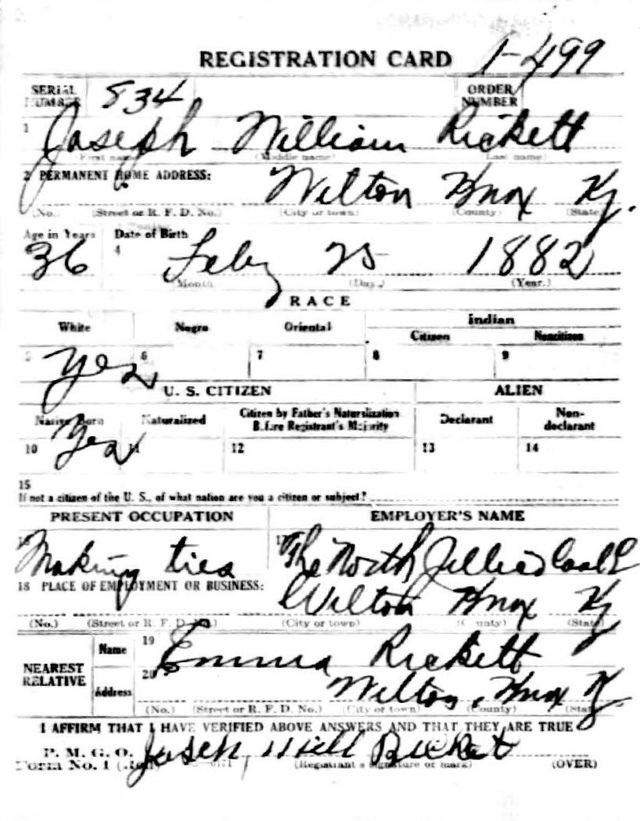 REGISTRATION CARD 1-499
SERIAL NUMBER 834 ORDER NUMBER
1 Joseph William Rickett
First name (Middle name) Last name
2 PERMANENT HOME ADDRESS: Wilton Knox Ky.
(No.) (Street or R. F. D. No.) (City or town) (County) (State)
Age in Years Date of Birth
36 4 Feby 25 1882
Month (Day.) (Year.)
RACE
White Negro Oriental Indian
Citizen Noncitizen
5 Yes 6 7 8 9
U. S. CITIZEN ALIEN
Native Born Naturalized Citizen by Father's Naturalization Before Registrant's Majority Declarant Non-declarant
10 Yes 11 12 13 14
15
If not a citizen of the U. S., of what nation are you a citizen or subject?
PRESENT OCCUPATION EMPLOYER'S NAME
Making ties 17 The North Jellico Coal
18 PLACE OF EMPLOYMENT OR BUSINESS: Wilton Knox Ky
(No.) (Street or R. F. D. No.) (City or town) (County) (State)
NEAREST RELATIVE Name 19 Emma Rickett
Address 20 Wilton, Knox Ky.
(No.) (Street or R. F. D. No.) (City or town) (County) (State)
I AFFIRM THAT I HAVE VERIFIED ABOVE ANSWERS AND THAT THEY ARE TRUE
P. M. G. O.
Form No. 1 (Red) Joseh Will Ricket (Registrant's signature or mark) (OVER)